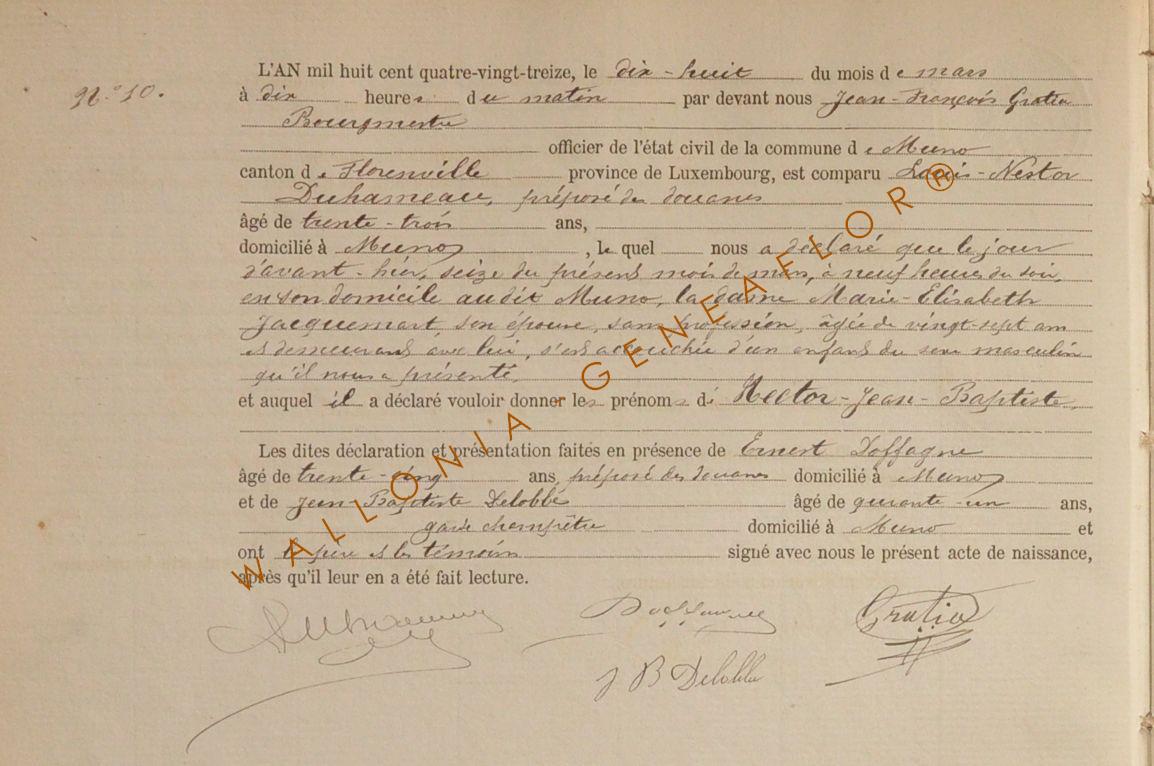 N.° 10.
L'AN mil huit cent quatre-vingt-treize, le dix-huit du mois de mars
à dix heures du matin par devant nous Jean-François Gratia
Bourgmestre
officier de l'état civil de la commune de Muno
canton de Florenville province de Luxembourg, est comparu Louis-Nestor
Duhameau, préposé des douanes
âgé de trente-trois ans,
domicilié à Muno, le quel nous a déclaré que le jour
d'avant-hier, seize du présent mois de mars, à neuf heures du soir,
en son domicile audit Muno, la dame Marie-Elisabeth
Jacquemart, son épouse, sans profession, âgée de vingt-sept ans
et demeurant avec lui, s'est accouchée d'un enfant du sexe masculin
qu'il nous a présenté,
et auquel il a déclaré vouloir donner les prénoms de Hector-Jean-Baptiste,
Les dites déclaration et présentation faites en présence de Ernest Doffagne
âgé de trente-cinq ans, préposé des douanes domicilié à Muno
et de Jean-Baptiste Delobbe âgé de quarante-un ans,
garde champêtre domicilié à Muno et
ont le père et les témoins signé avec nous le présent acte de naissance,
après qu'il leur en a été fait lecture.
Gratia
J B Delobbe
WALLONIA GENEAFLOR®